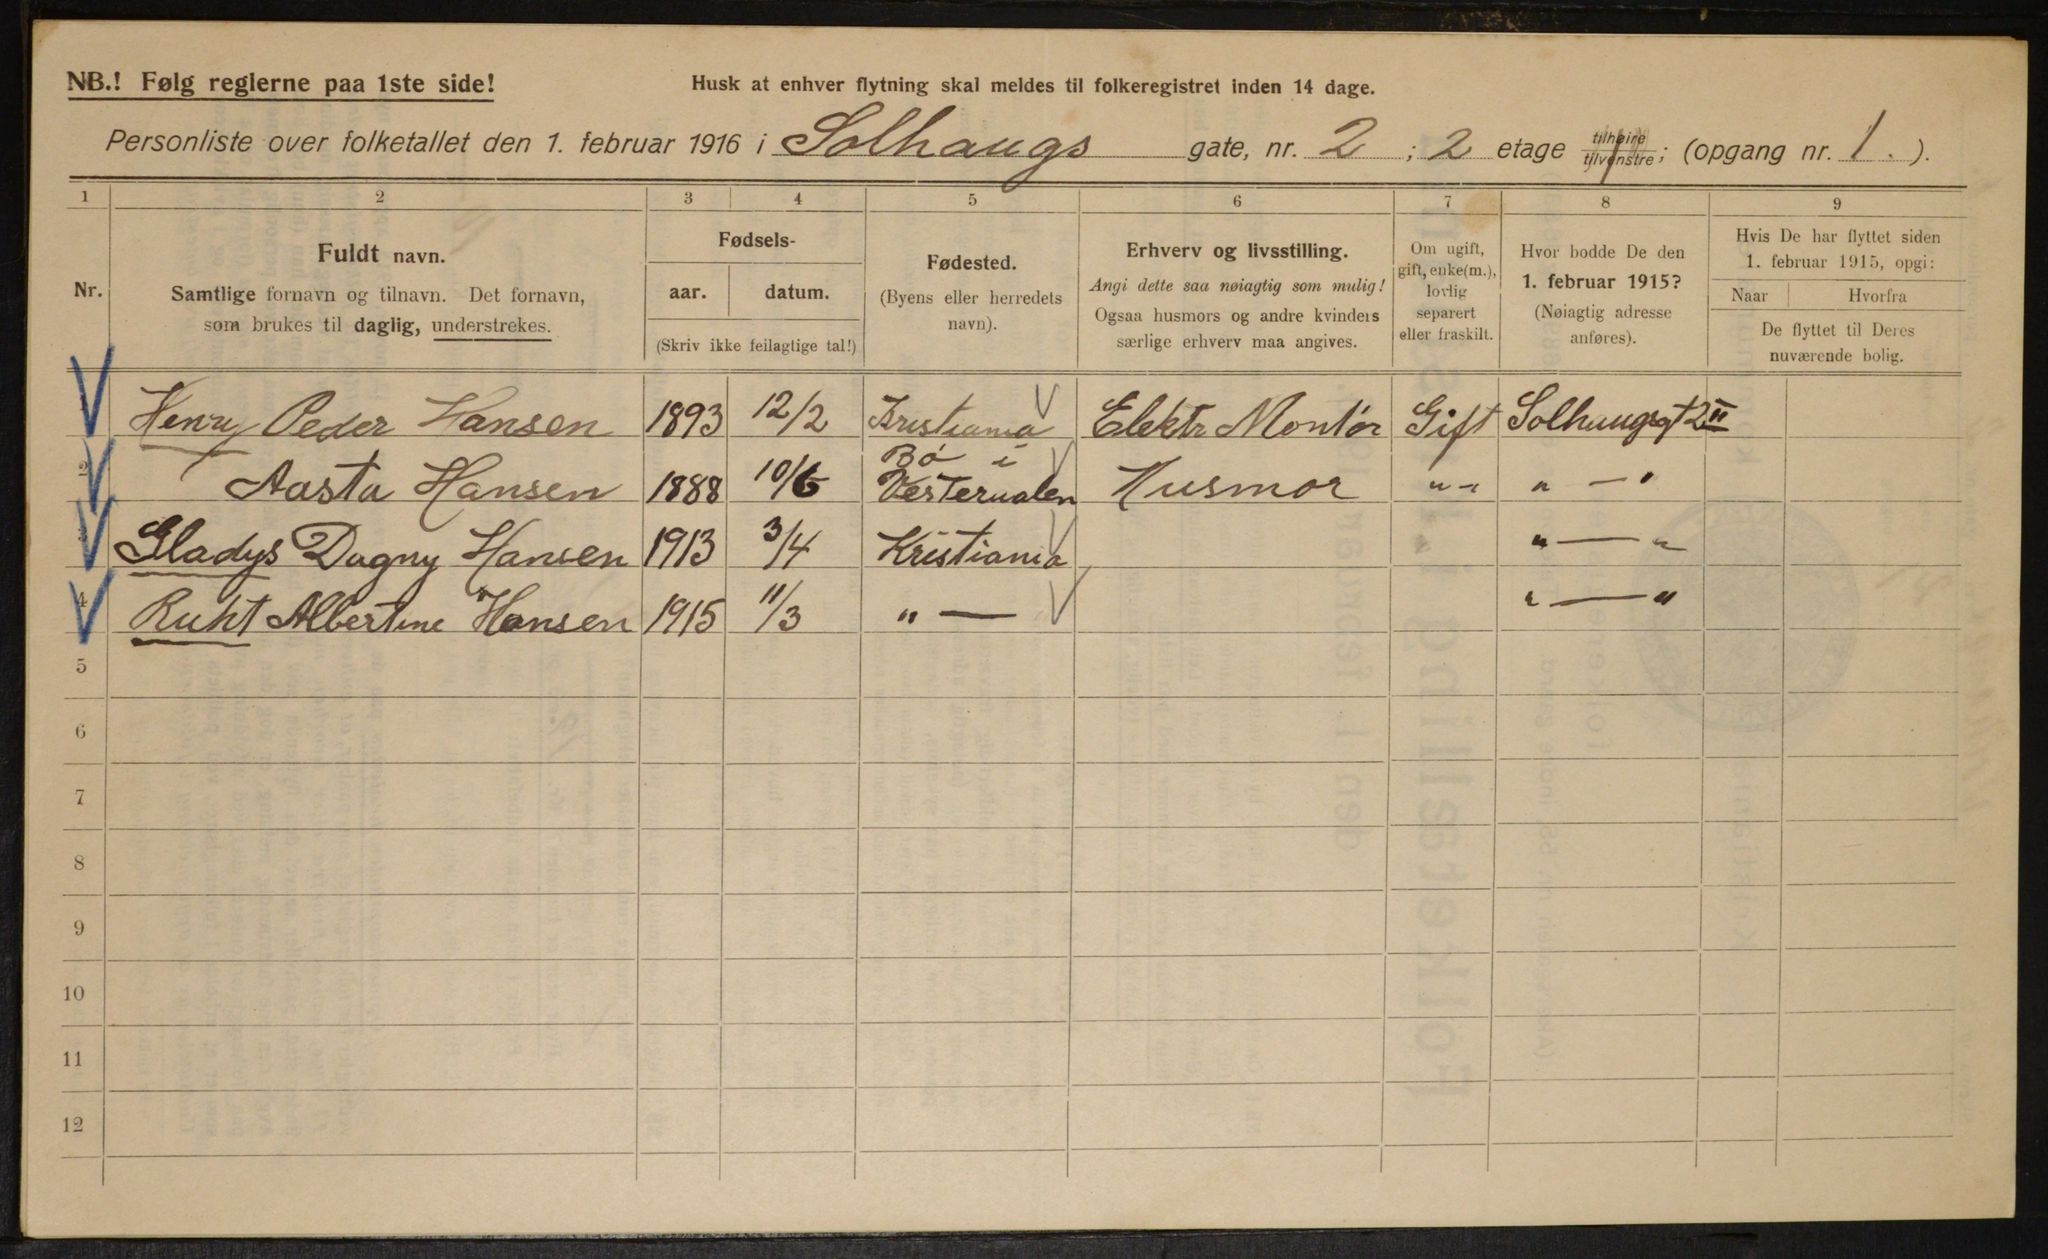 NB.! Følg reglerne paa 1ste side!
Husk at enhver flytning skal meldes til folkeregistret inden 14 dage.
Personliste over folketallet den 1. februar 1916 i Solhaugs gate, nr. 2 ; 2 etage tilhøire tilvenstre ; (opgang nr. 1. ).
1 2 3 4 5 6 7 8 9
Nr.
Fuldt navn.
Samtlige fornavn og tilnavn. Det fornavn,
som brukes til daglig, understrekes.
Fødsels-
aar. datum.
(Skriv ikke feilagtige tal!)
Fødested.
(Byens eller herredets
navn).
Erhverv og livsstilling.
Angi dette saa nøiagtig som mulig!
Ogsaa husmors og andre kvinders
særlige erhverv maa angives.
Om ugift,
gift, enke(m.),
lovlig
separert
eller fraskilt.
Hvor bodde De den
1. februar 1915?
(Nøiagtig adresse
anføres).
Hvis De har flyttet siden
1. februar 1915, opgi:
Naar Hvorfra
De flyttet til Deres
nuværende bolig.
Henry Peder Hansen 1893 12/2 Kristiania Elektr Montør Gift Solhaugsgt 2 II
2 Aasta Hansen 1888 10/6 Bø i Vesteraalen Husmor „ „ „ — „
3 Gladys Dagny Hansen 1913 3/4 Kristiania „ — „
4 Ruht Albertine Hansen 1915 11/3 „ — „ — „
5
6
7
8
9
10
11
12